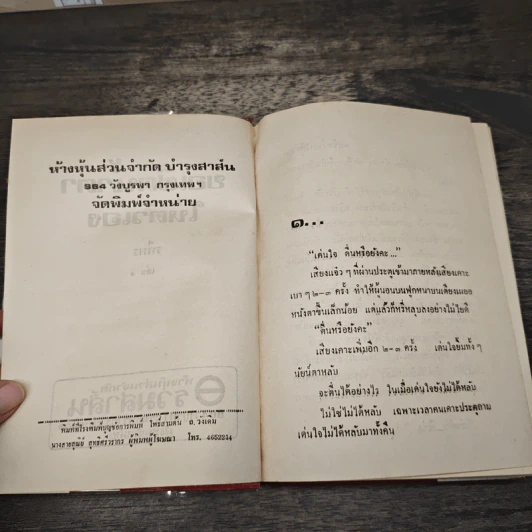 ห้างหุ้นส่วนจำกัด บำรุงสาส์น
384 วังบูรพา กรุงเทพฯ
จัดพิมพ์จำหน่าย
รวมสาส์น
พิมพ์ที่โรงพิมพ์
นางสาย ผู้พิมพ์ผู้โฆษณา โทร. 4652234
๑...
"เด่นใจ ตื่นหรือยังคะ..."
เสียงแจ้ว ๆ ที่ผ่านประตูเข้ามาภายหลังเสียงเคาะ
เบา ๆ ๒-๓ ครั้ง ทำให้ผู้นอนบนฟูกหนาบนเตียงเผยอ
หนังตาขึ้นเล็กน้อย แต่แล้วก็หรี่หลุบลงอย่างไม่ไยดี
"ตื่นหรือยังคะ"
เสียงเคาะเพิ่มอีก ๒-๓ ครั้ง เด่นใจยิ้มทั้ง ๆ
นัยน์ตาหลับ
จะตื่นได้อย่างไร ในเมื่อเด่นใจยังไม่ได้หลับ
ไม่ใช่ไม่ได้หลับ เฉพาะเวลาคนเคาะประตูถาม
เด่นใจไม่ได้หลับมาทั้งคืน